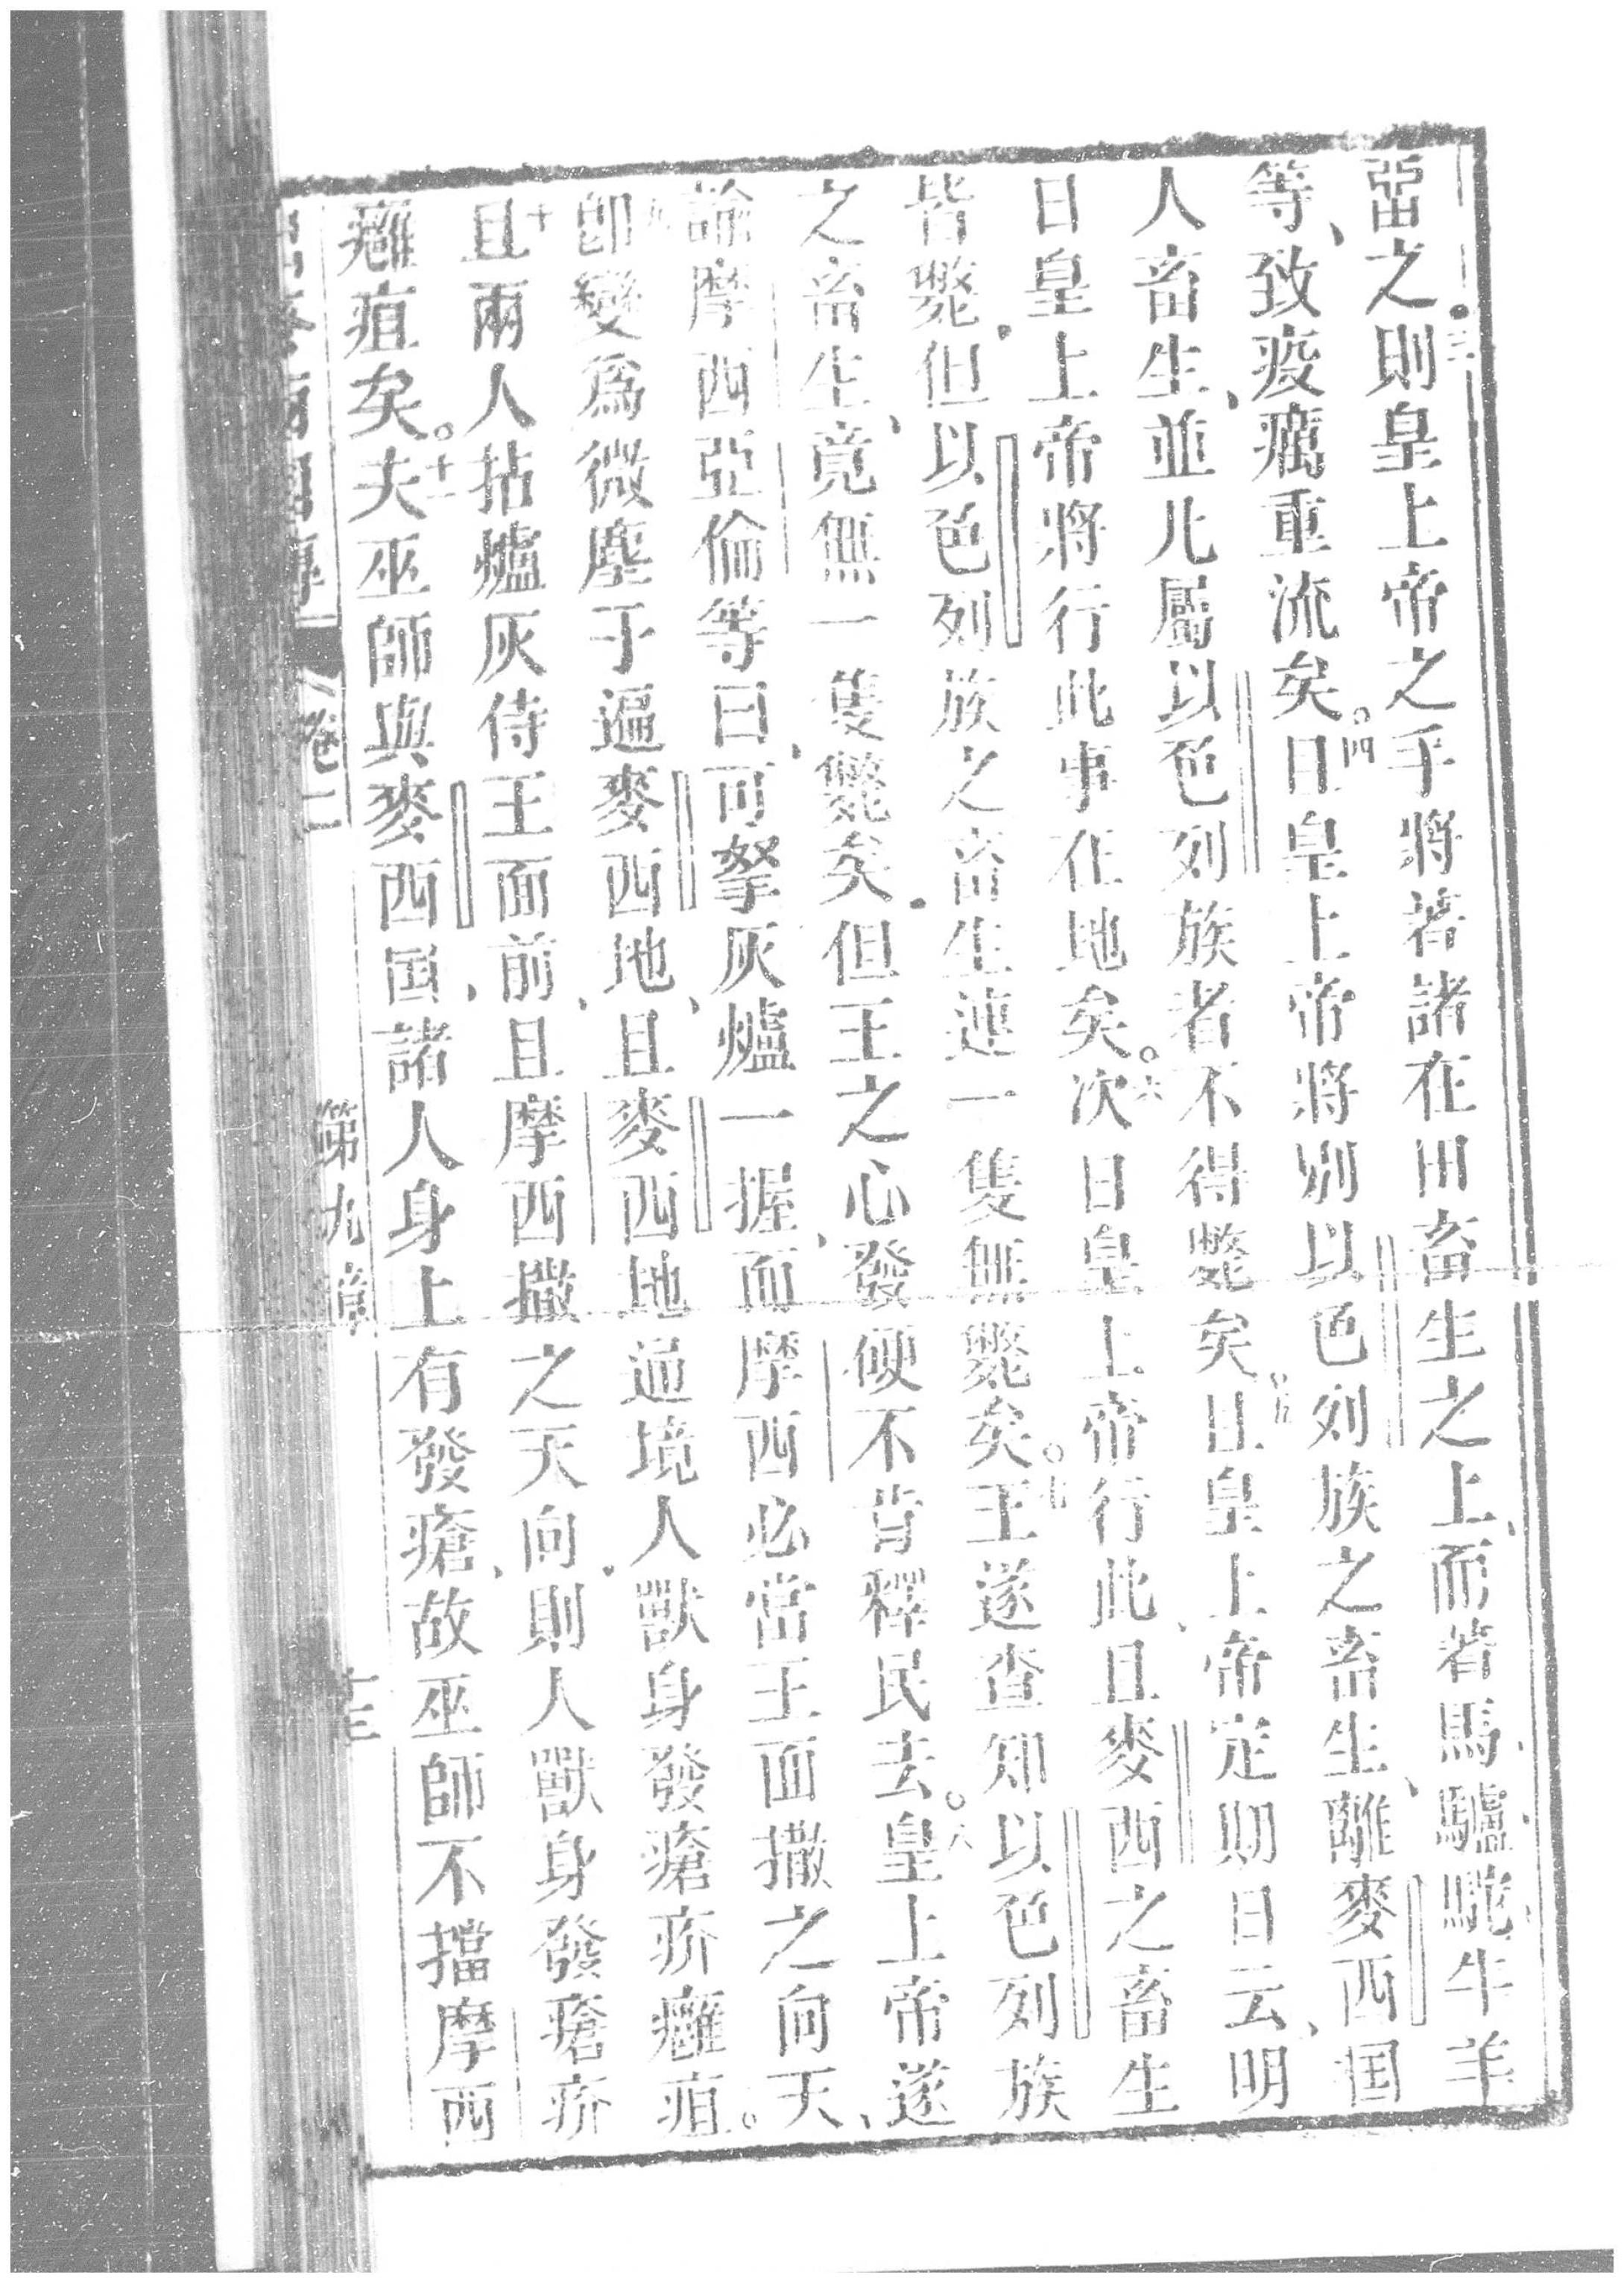 畱之。三則皇上帝之手將著諸在田畜生之上、而著馬、驢、駝、牛羊
等、致疫癘重流矣。四日皇上帝將別以色列族之畜生、離麥西国
人畜生、並凡屬以色列族者不得斃矣。五且皇上帝定期日云、明
日皇上帝將行此事在地矣。六次日皇上帝行此、且麥西之畜生
皆斃、但以色列族之畜生連一隻無斃矣。七王遂查知以色列族
之畜生、竟無一隻斃矣、但王之心發硬不肯釋民去。八皇上帝遂
諭摩西亞倫等曰、可拏灰爐一握、而摩西必當王面撒之向天、
九卽變爲微塵于遍麥西地、且麥西地通境人獸身發瘡疥癰疽。
十且兩人拈爐灰侍王面前、且摩西撒之天向、則人獸身發瘡疥
癰疽矣。十一夫巫師與麥西国諸人身上有發瘡、故巫師不擋摩西
卷二 第九章